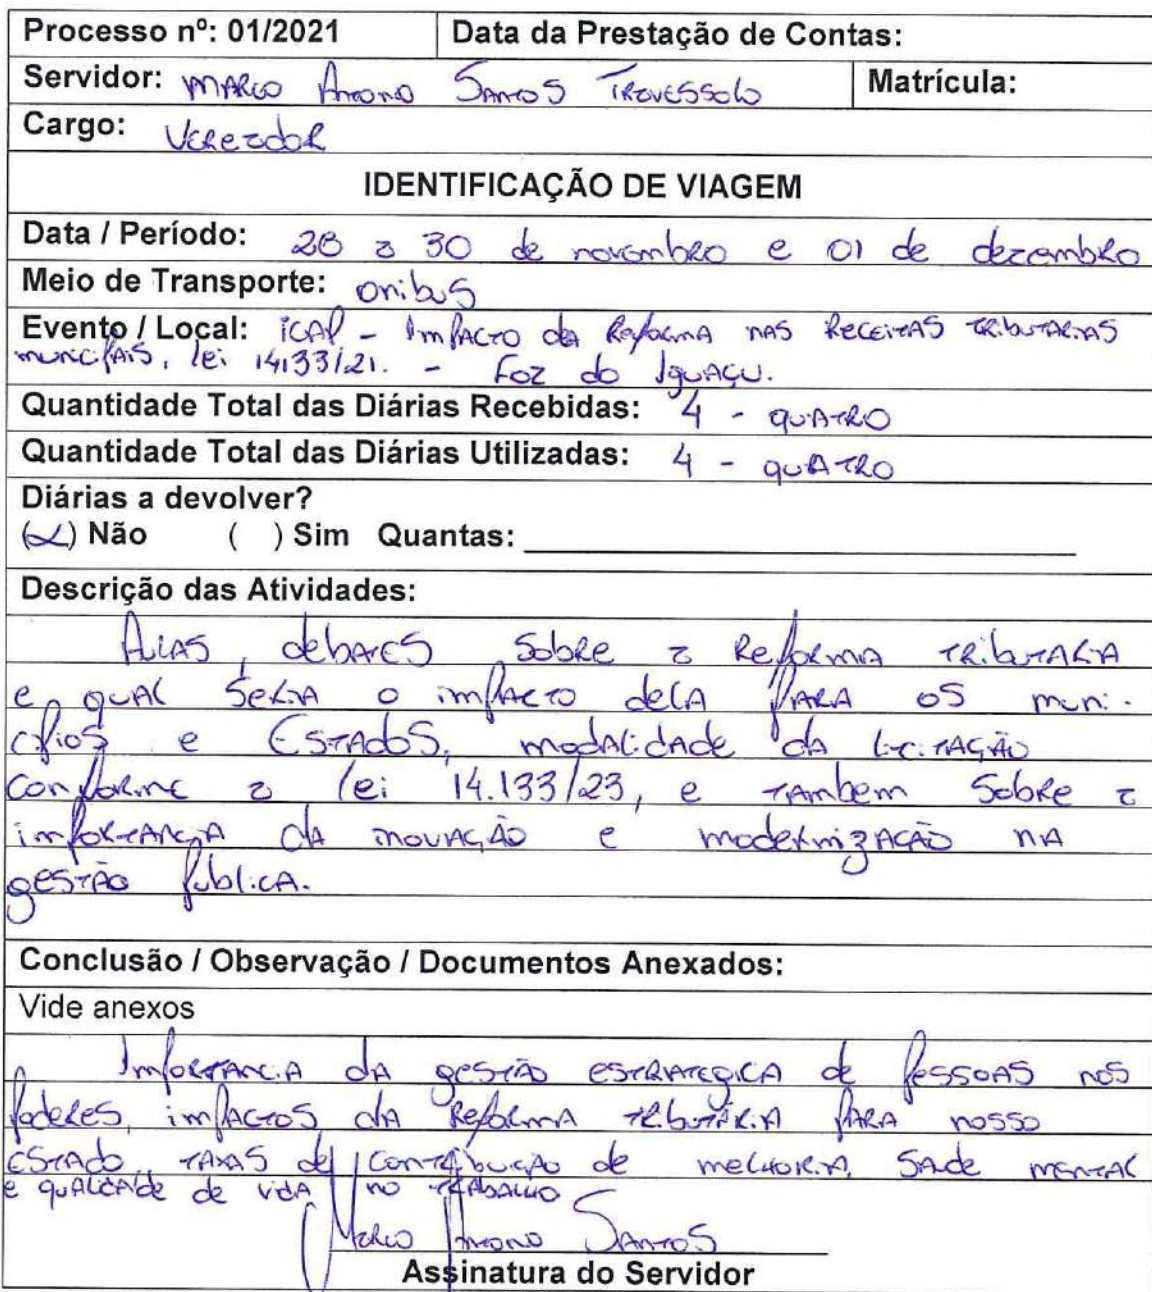 Processo nº: 01/2021 Data da Prestação de Contas:
Servidor: Marco Antonio Santos Trovessolo Matrícula:
Cargo: Vereador
IDENTIFICAÇÃO DE VIAGEM
Data / Período: 28 a 30 de novembro e 01 de dezembro
Meio de Transporte: onibus
Evento / Local: ICAP - Impacto da Reforma nas Receitas tributarias
municipais, lei 14133/21. - Foz do Iguaçu.
Quantidade Total das Diárias Recebidas: 4 - quatro
Quantidade Total das Diárias Utilizadas: 4 - quatro
Diárias a devolver?
(X) Não ( ) Sim Quantas:
Descrição das Atividades:
Aulas, debates sobre a Reforma tributaria
e qual seria o impacto dela para os muni-
cipios e Estados, modalidade da licitação
conforme a lei 14.133/23, e tambem sobre a
importancia da inovação e modernização na
gestão publica.
Conclusão / Observação / Documentos Anexados:
Vide anexos
Importancia da gestão estrategica de pessoas nos
poderes, impactos da Reforma tributária para nosso
estado, taxas de contribuição de melhoria, saude mental
e qualidade de vida no trabalho
Marco Antonio Santos
Assinatura do Servidor